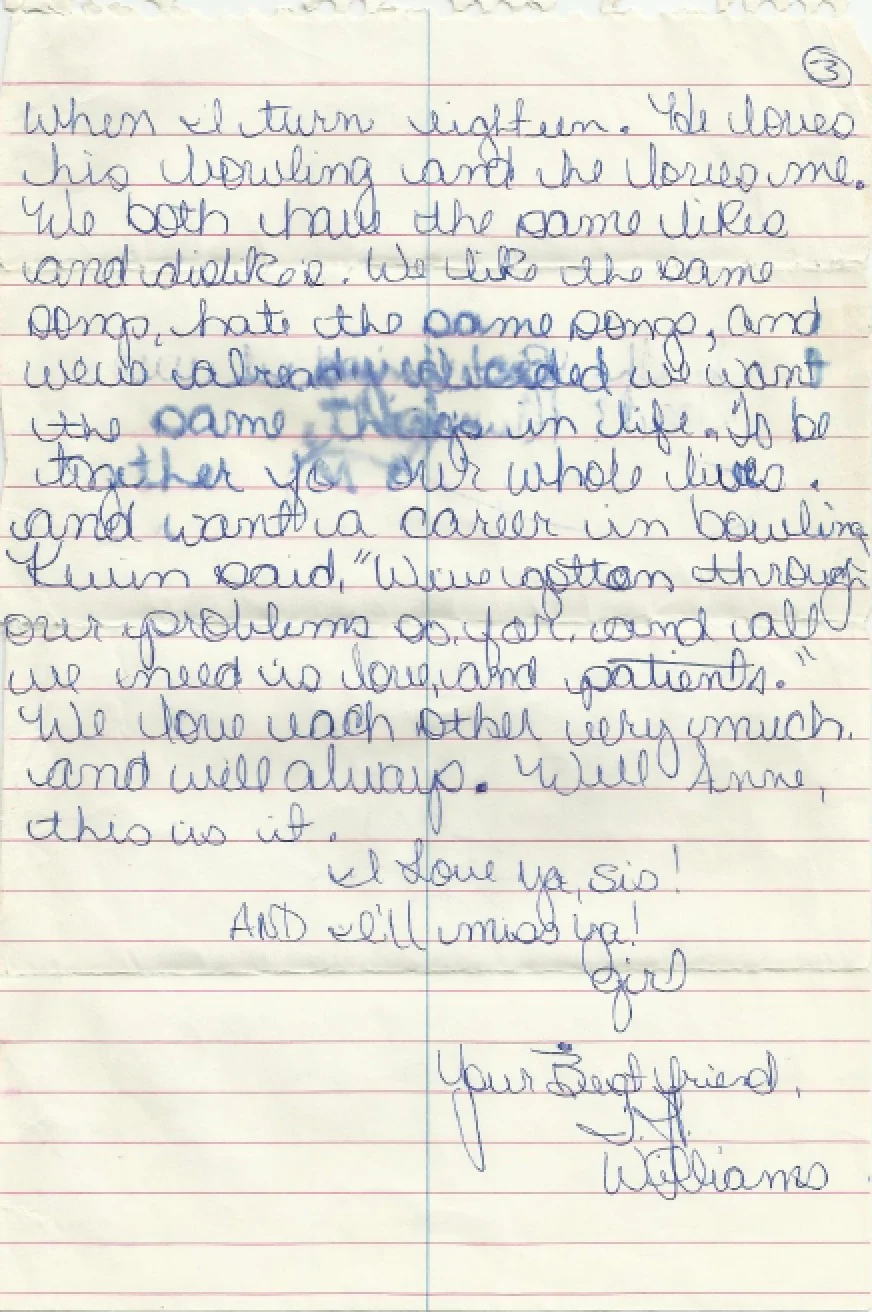 3
When I turn eighteen. He loves
his bowling and he loves me.
We both have the same likes
and dislikes. We like the same
songs, hate the same songs, and
weve already decided we want
the same things in life. To be
together for our whole lives.
and want a career in bowling
Kevin said, "We've gotton through
our problems so far, and all
we need is love, and patients."
We love each other very much,
and will always. Well Anne,
this is it.
I Love ya, sis!
AND I'll miss ya!
girl
Your Best friend,
Williams